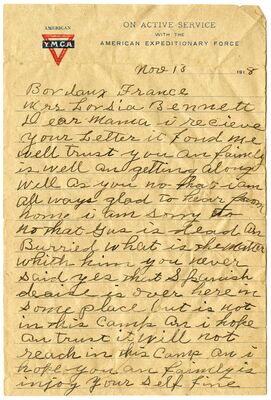 AMERICAN
Y.M.C.A.
ON ACTIVE SERVICE
WITH THE
AMERICAN EXPEDITIONARY FORCE
Nov 13 1918
Bordaux France
Mrs Lossia Bennett
Dear Mama i recieve
your Letter it fond me
well trust you an family
is well an getting along
well as you no that i am
all ways glad to hear from
home i am sorry to
no that Gus is dead an
Burried what is the matter
whith him you never
said yes that Spanish
deaise is over here in
some place but is not
in this Camp an i hope
an trust it will not
reach in this Camp an i
hope you an family is
injoy your self fine